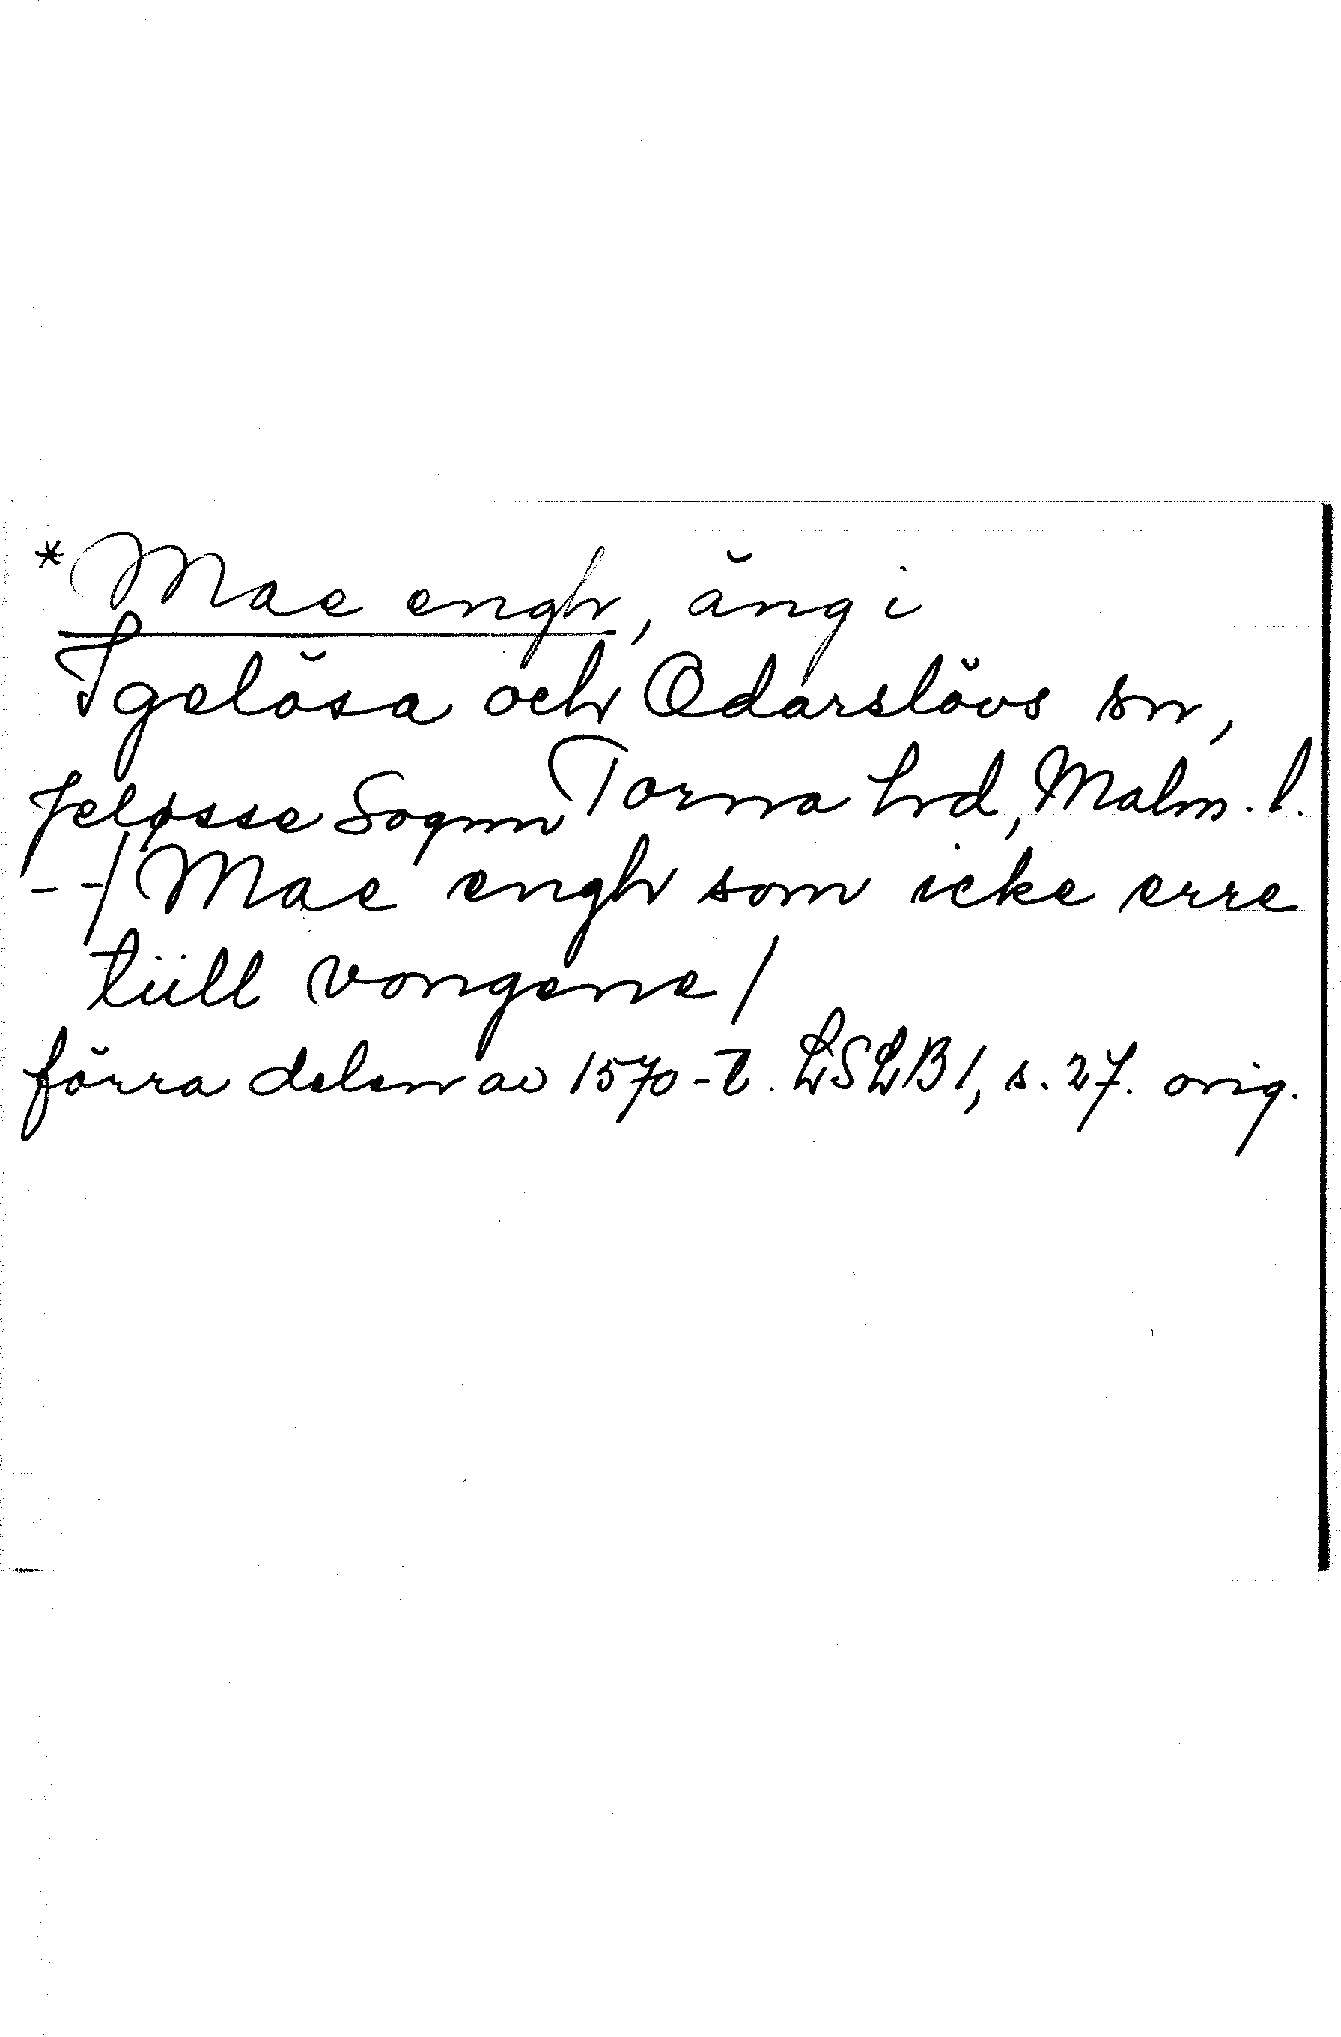 *Mae engh, äng i
Igelösa och Odarslövs sn,
Jeløsse Sognn Torna hrd, Malm. l.
- -/ Mae engh som icke erre
tiill vongene /
förra delen av 1570-t. LSLB 1, s. 27. orig.